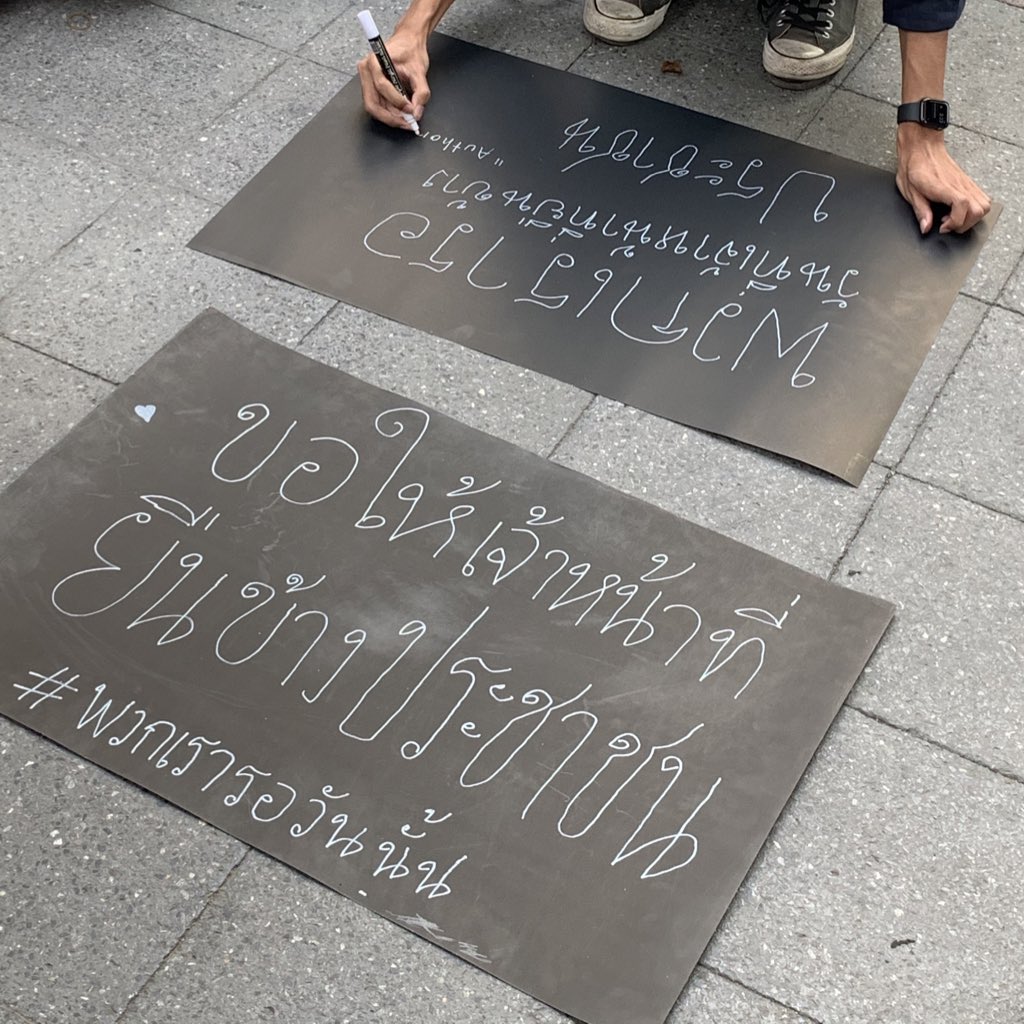 พวกเรารอ
วันที่เจ้าหน้าที่ยืนข้าง
ประชาชน
"Author
ขอให้เจ้าหน้าที่
ยืนข้างประชาชน
#พวกเรารอวันนั้น